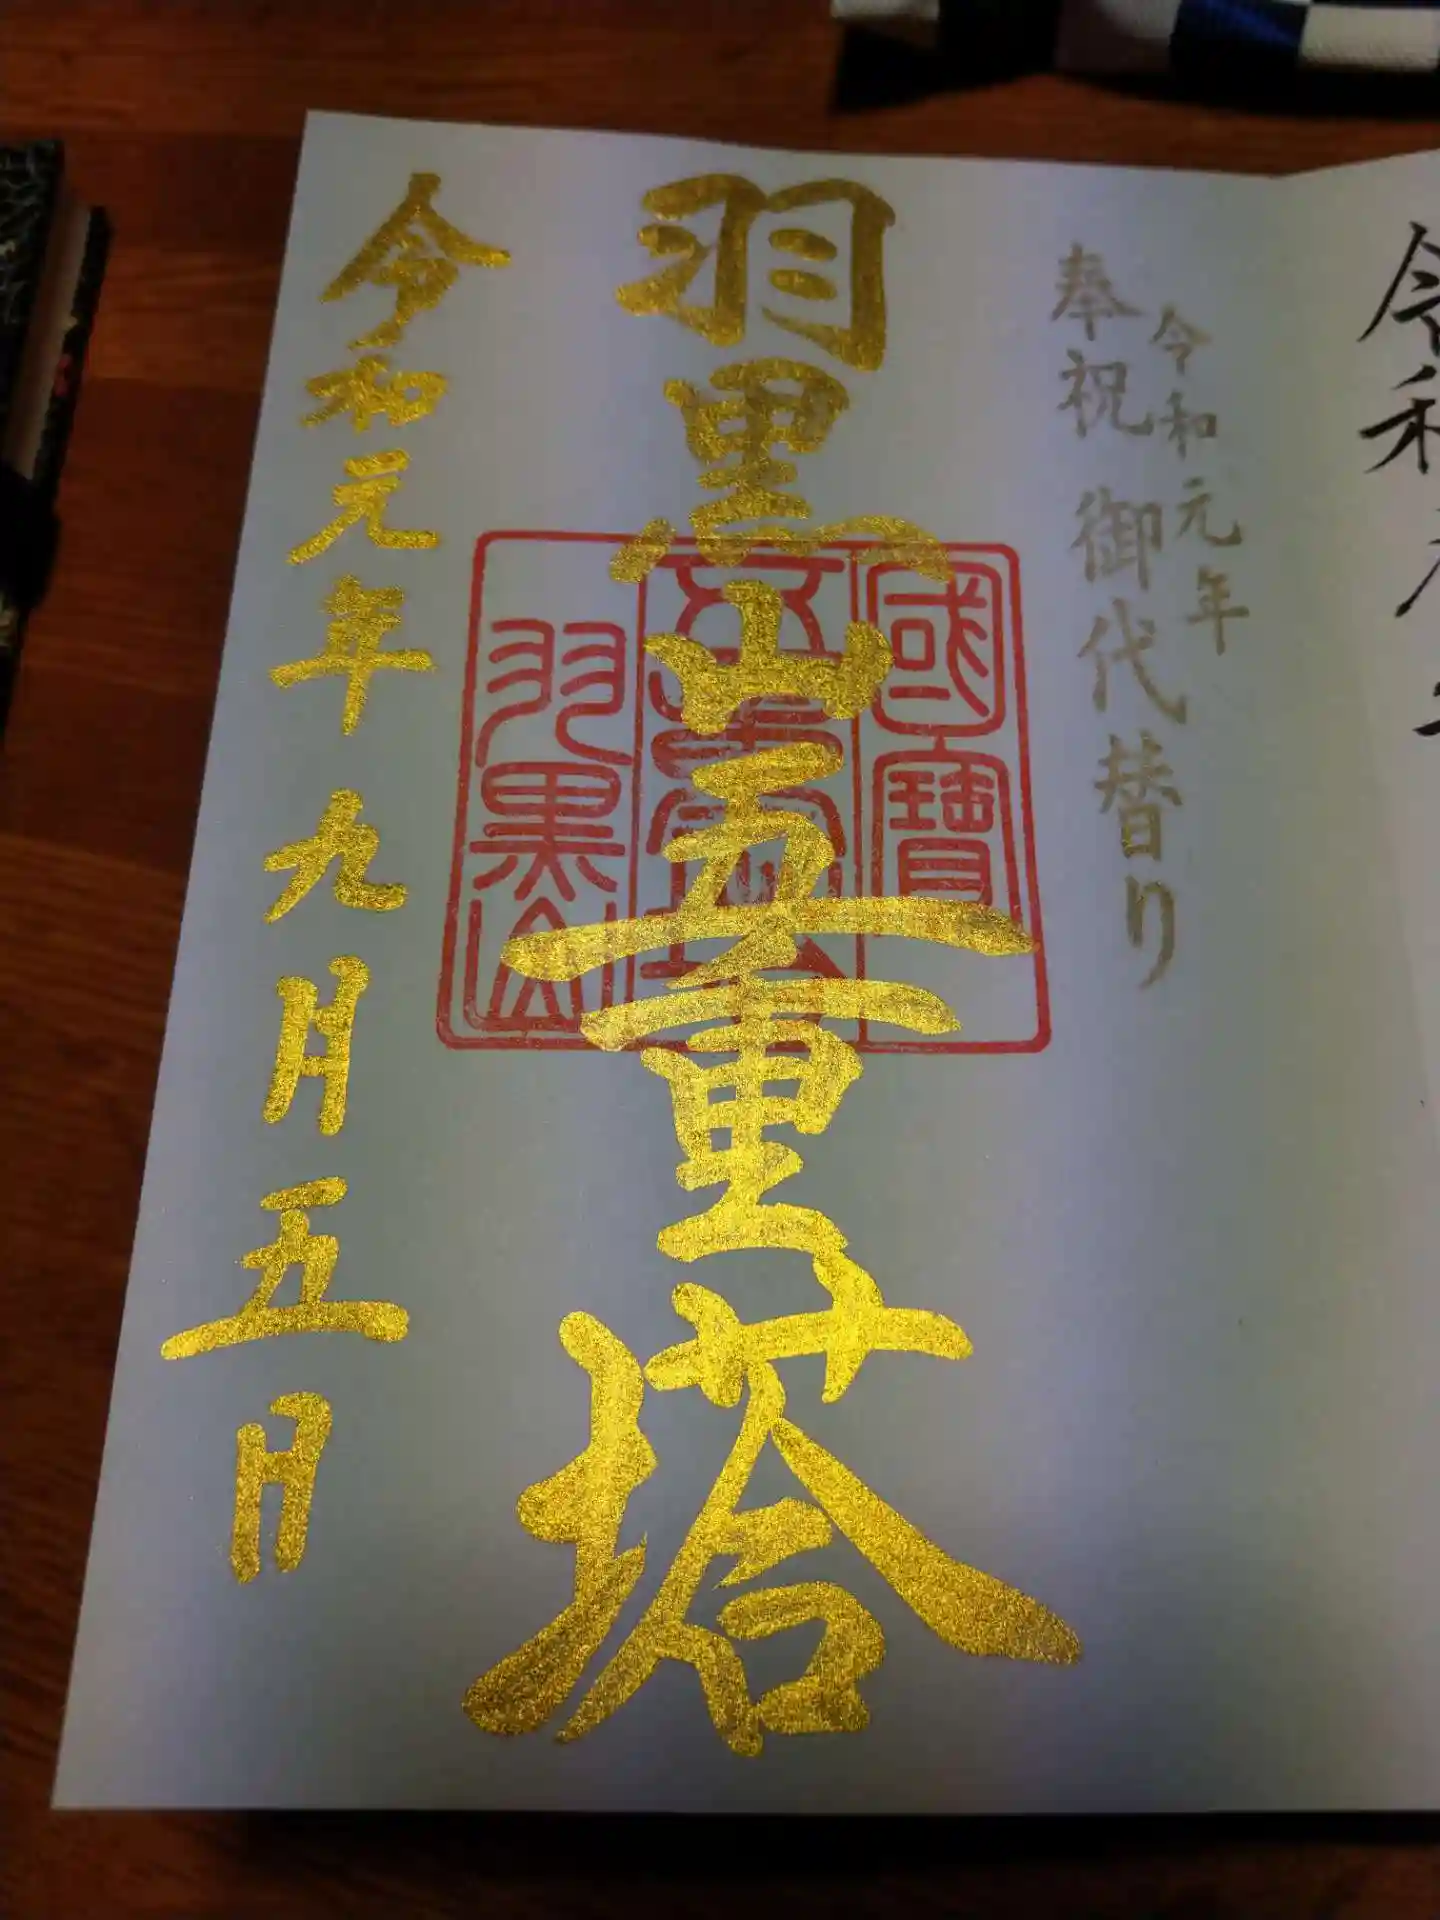 令和元年
奉祝 御代替り
國寶
五重塔
羽黒山
羽黒山五重塔
令和元年九月五日